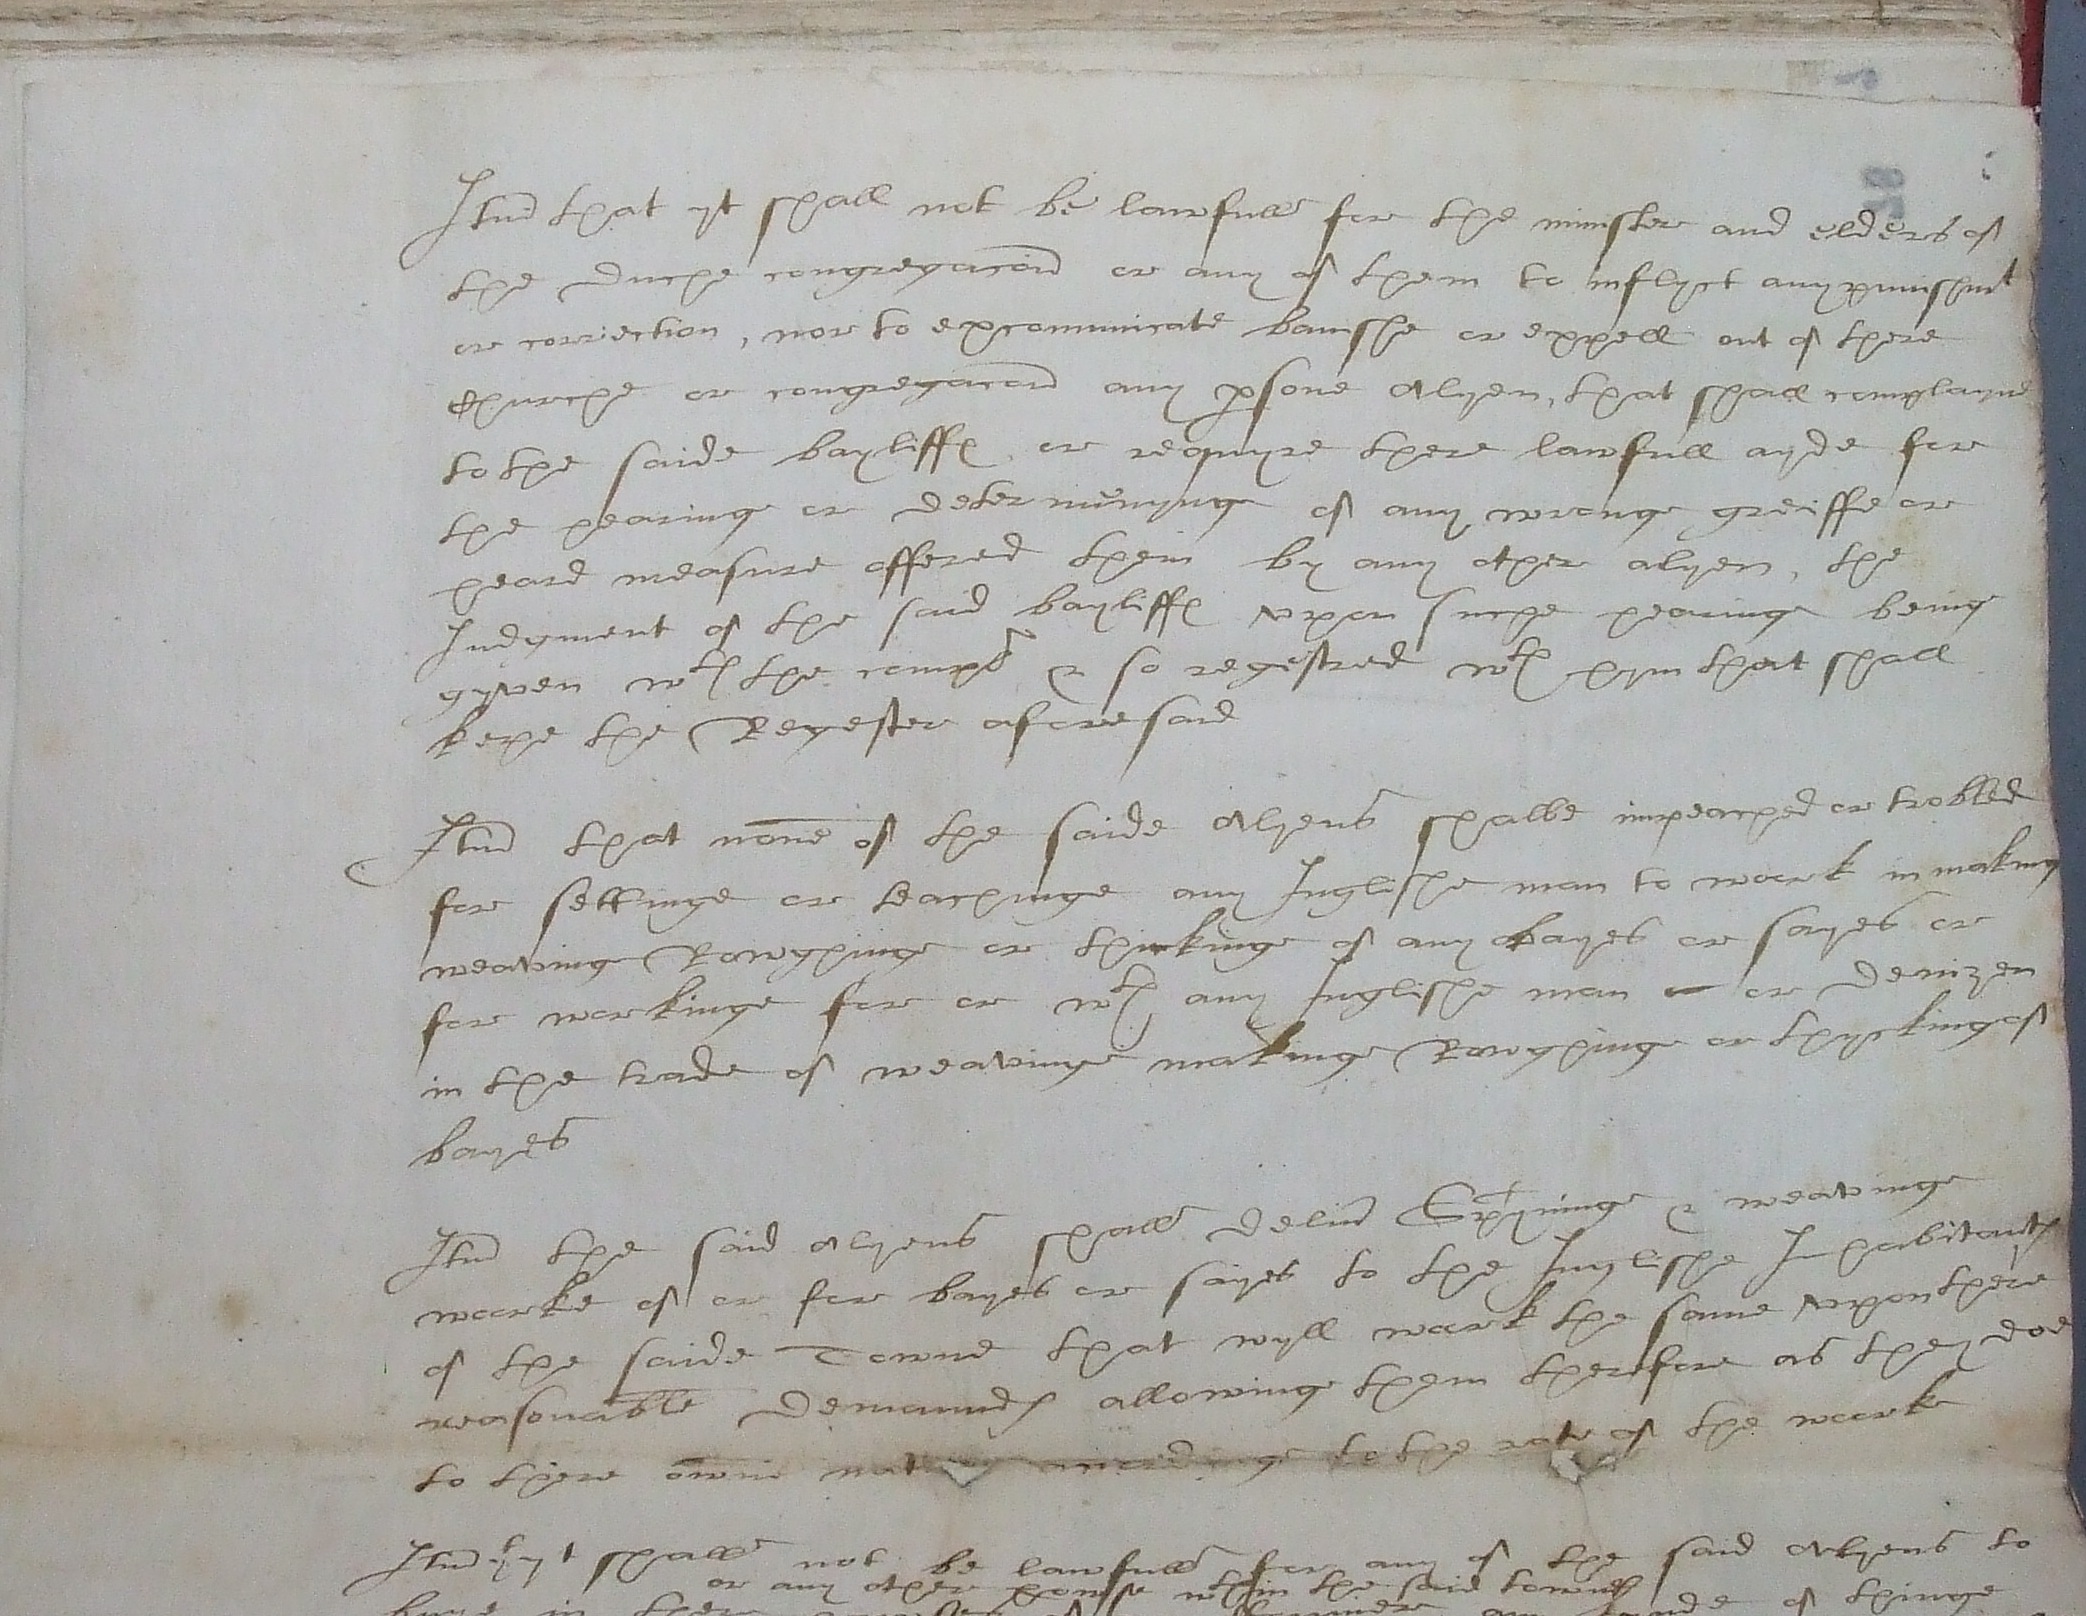 Itm that yt shall not be lawfull for the minister and elders of
the duche congregacon or any of them to inflyct any punishmt
or correction, nor to excommunicate banishe or expell out of there
Churche or congregacon any psone Alyen, that shall complayne
to the saide bayliffs or requyre there lawfull ayde for
the hearing or determinynge of any wronge greiffe or
heard measure offered them by any other alyen, the
Judgment of the said bayliffs vpon suche hearinge being
gyven wth the & so regestred wth hym that shall
kepe the Regester aforesaid
Itm that none of the saide Alyens shalbe impeached or trobled
for settinge or teachinge any Inglishe man to work in making
weavinge Rowghinge or thickinge of any bayes or sayes or
for workinge for or wth any Inglishe man or denizen
in the trade of weavinge makinge Rowghinge or thyckinge of
bayes
Itm the said alyens shall deliu Spynninge & weavinge
woorke of or for bayes or sayes to the Inglishe Inhabitants
of the saide Towne that wyll work the same vpon there
reasonable demaunds allowinge them therefore as they doe
to there owne accordinge to the rate of the woorke
Itm yt yt shall not be lawfull for any of the said Alyens to
or any other howse wthin the said towne
of thinge